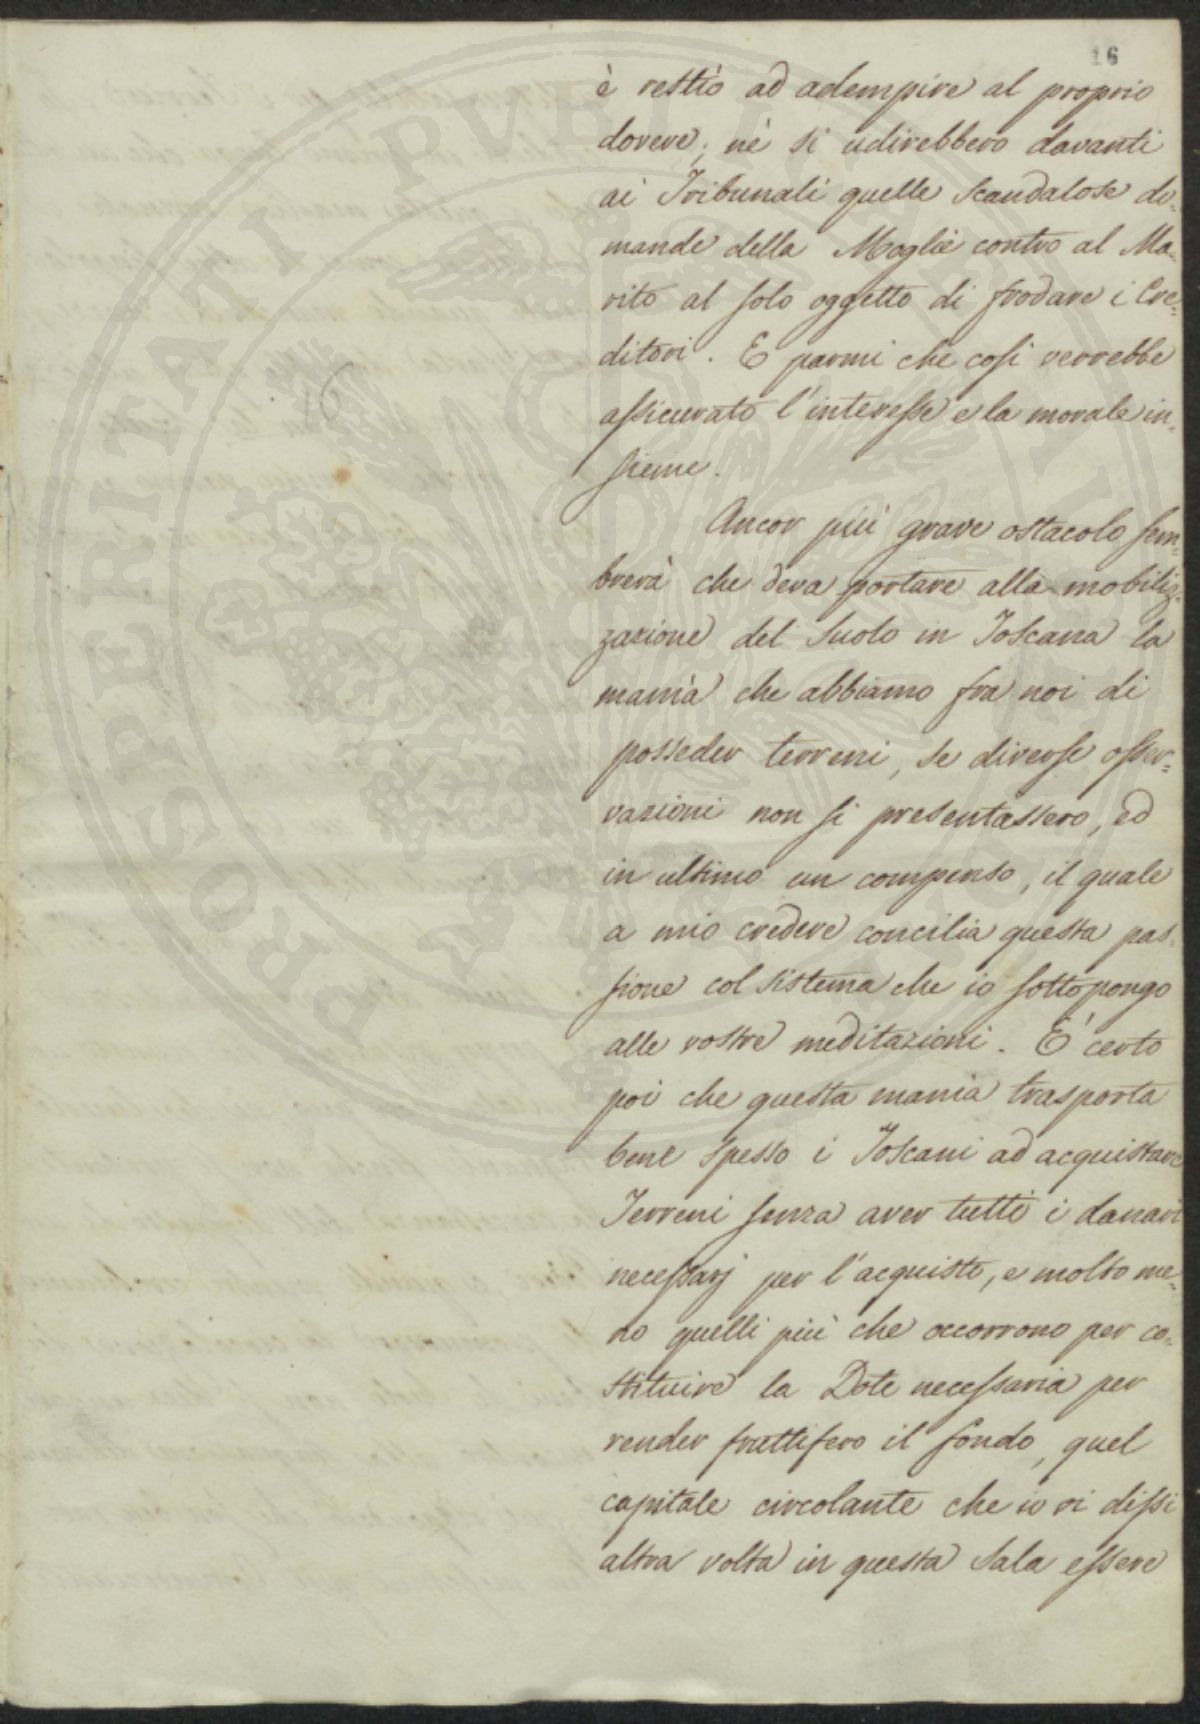 16
è restìo ad adempire al proprio
dovere; nè si udirebbero davanti
ai Tribunali quelle scandalose do-
mande della Moglie contro al Ma-
rito al solo oggetto di frodare i Cre-
ditori. E parmi che così verrebbe
assicurato l'interesse e la morale in-
sieme.
Ancor più grave ostacolo sem-
brerà che deva portare alla mobiliz-
zazione del Suolo in Toscana la
manìa che abbiamo fra noi di
posseder terreni, se diverse osser-
vazioni non si presentassero, ed
in ultimo un compenso, il quale
a mio credere concilia questa pas-
sione col sistema che io sottopongo
alle vostre meditazioni. È certo
poi che questa mania trasporta
bene spesso i Toscani ad acquistare
Terreni senza aver tutti i danari
necessarj per l'acquisto, e molto me-
no quelli più che occorrono per co-
stituire la Dote necessaria per
render fruttifero il fondo, quel
capitale circolante che io vi dissi
altra volta in questa Sala essere
16
PROSPERITATI PVBLICAE